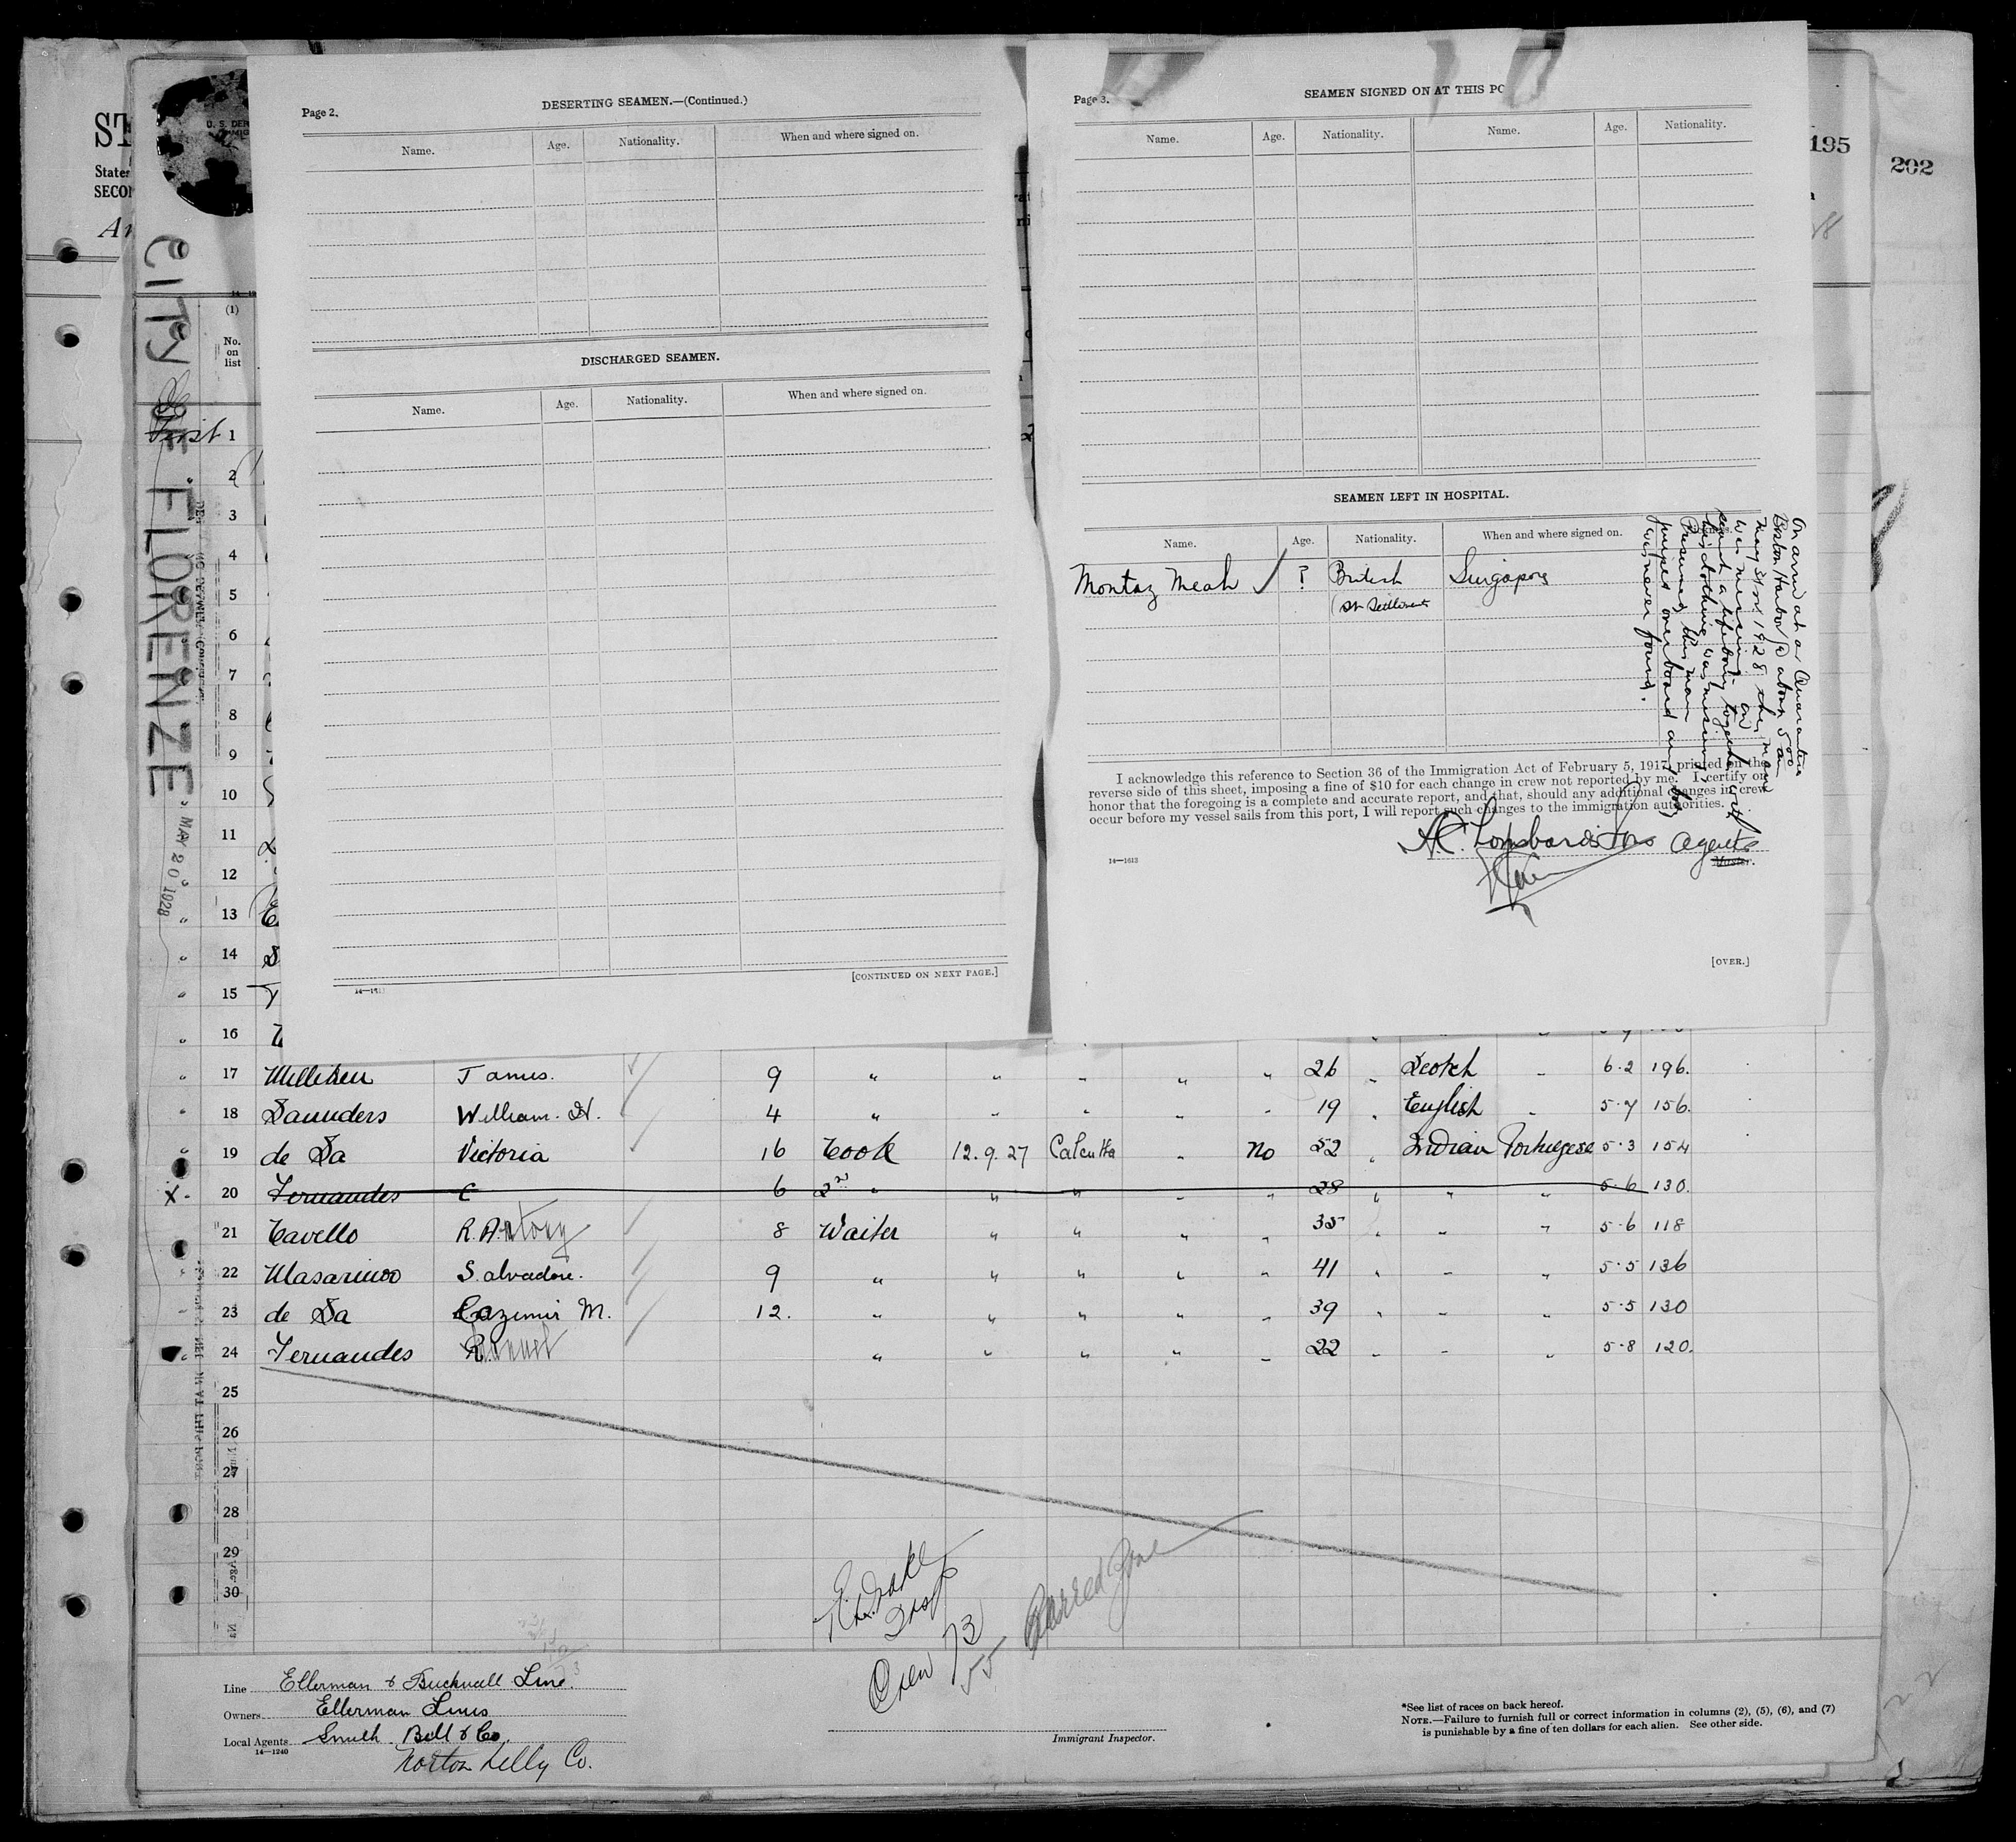 ST
State
SECO
195
202
U. S. DE
CITY
DE FLORENZE
MAY 20 1928
(1)
No.
on
list
First 1
2
3
4
5
6
7
8
9
10
11
12
13
14
15
16
Page 2.
DESERTING SEAMEN.—(Continued.)
Name. Age. Nationality. When and where signed on.
DISCHARGED SEAMEN.
Name. Age. Nationality. When and where signed on.
[CONTINUED ON NEXT PAGE.]
Page 3.
SEAMEN SIGNED ON AT THIS PO
Name. Age. Nationality. Name. Age. Nationality.
SEAMEN LEFT IN HOSPITAL.
Name. Age. Nationality. When and where signed on.
Montaz Meah ? British Singapore
(Str Settlements
On arrival at Quarantine
Boston Harbor @ about 5 00 am
May 31 1928 this man
was missing
a lifebuoy together with
his clothing was missing
Presumed this man
jumped overboard and body
was never found.
I acknowledge this reference to Section 36 of the Immigration Act of February 5, 1917, printed on the
reverse side of this sheet, imposing a fine of $10 for each change in crew not reported by me. I certify on
honor that the foregoing is a complete and accurate report, and that, should any additional changes in crew
occur before my vessel sails from this port, I will report such changes to the immigration authorities.
A.C. Lombard's Sons Agents
Master.
14—1613
[OVER.]
" 17 Milliken James. 9 " " " " " 26 " Scotch " 6.2 196.
" 18 Saunders William. H. 4 " " " " " 19 " English " 5.7 156.
" 19 de Sa Victoria 16 Cook 12.9.27 Calcutta " No 52 " Indian Portuguese 5.3 154
X 20 Fernandes C 6 2nd " " " " " 28 " " " 5.6 130.
" 21 Cavello R. Antony 8 Waiter " " " " 35 " " " 5.6 118
" 22 Masarinoo Salvadore. 9 " " " " " 41 " " " 5.5 136
" 23 de Sa Cazimir M. 12. " " " " " 39 " " " 5.5 130
" 24 Fernandes R. " " " " " 22 " " " 5.8 120.
25
26
27
28
29
30
Crew 73
55 Barred Zone
Line Ellerman & Bucknall Line.
Owners Ellerman Lines
Local Agents Smith Bell & Co.
14—1240
Norton Lilly Co.
Immigrant Inspector.
*See list of races on back hereof.
NOTE.—Failure to furnish full or correct information in columns (2), (5), (6), and (7)
is punishable by a fine of ten dollars for each alien. See other side.